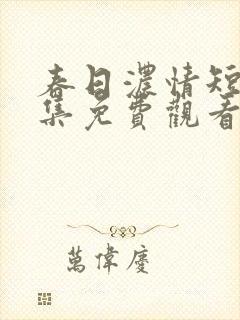 春日濃情短
集免費觀看
萬偉慶